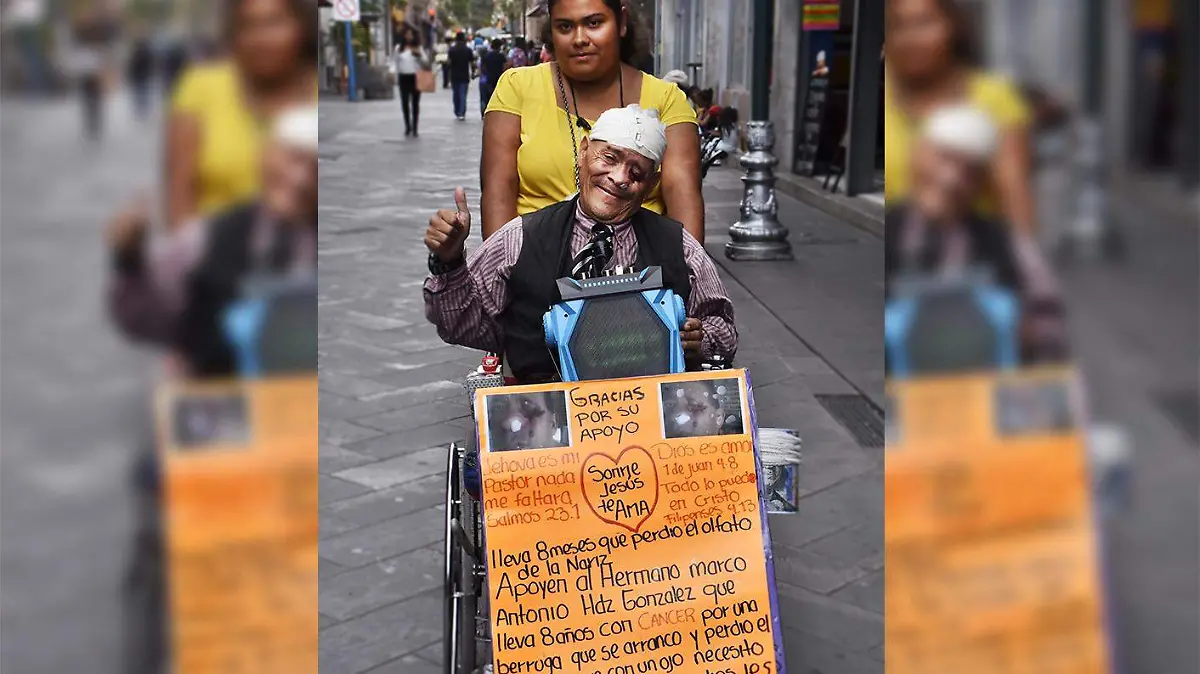 GRACIAS
POR SU
APOYO
Jehova es mi
Pastor nada
me faltara
Salmos 23.1
Sonrie
Jesús
te AMA
Dios es amor
1 de juan 4.8
Todo lo puedo
en Cristo
Filipenses 4.13
lleva 8 meses que perdio el olfato
de la Nariz
Apoyen al Hermano marco
Antonio Hdz Gonzalez que
lleva 8 años con CANCER por una
berruga que se arranco y perdio el
con un ojo necesito
les